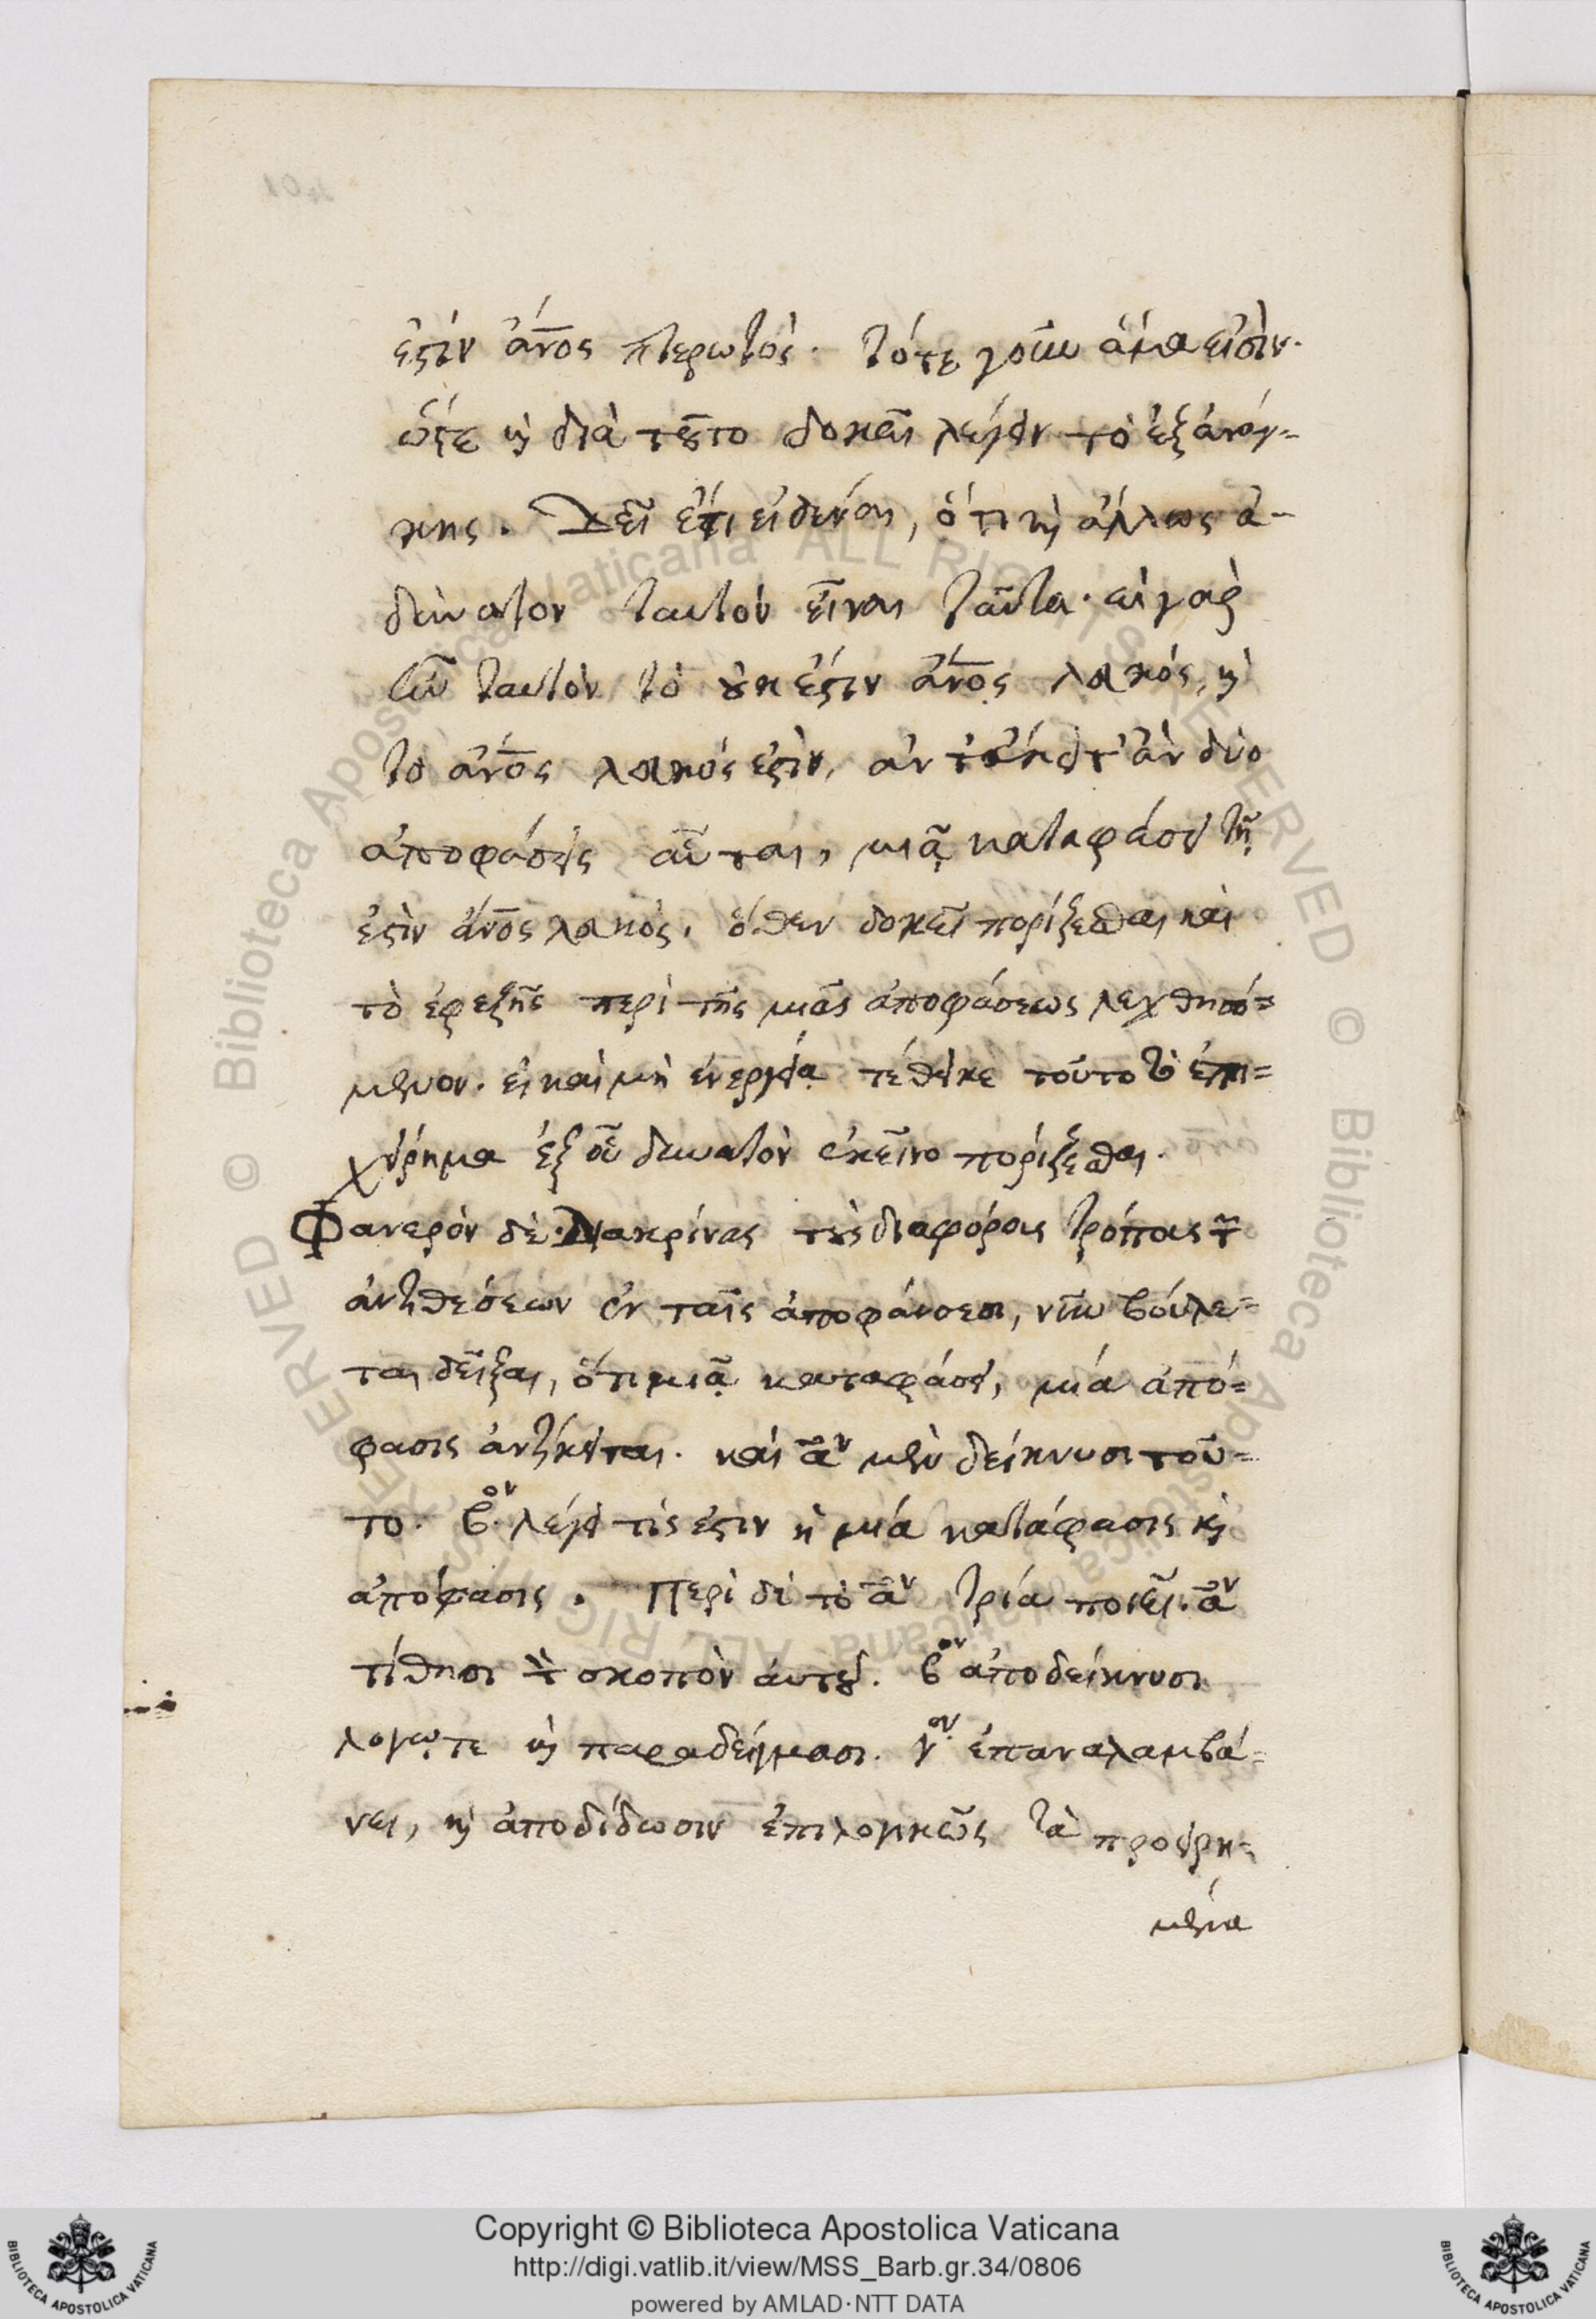 ἐστὶν ἄν̅ο̅ς πτερωτός. τότε γοῦν ἅμα εἰσίν.
ὥστε κ̀ διὰ τοῦτο δοκεῖ λέγειν τὸ ἐξ ἀνάγ=
κης. Δεῖ ἔτι εἰδέναι, ὅτι κ̀ ἄλλως ἀ-
δύνατον ταυτὸν εἶναι ταῦτα. εἰ γὰρ
ἦν ταυτὸν τὸ οὐκ ἔστιν ἄν̅ο̅ς λευκός, κ̀
τὸ ἄν̅ο̅ς λευκός ἐστιν, ἀντέκειτ' ἂν δύο
ἀποφάσεις αὗται, μιᾷ καταφάσει τῇ
ἐστὶν ἄν̅ο̅ς λευκός. ὅθεν δοκεῖ πορίζεσθαι καὶ
τὸ ἐφεξῆς περὶ τῆς μιᾶς ἀποφάσεως λεχθησό=
μενον. εἰ καὶ μὴ ἐνεργείᾳ τέθεικε τοῦτο τὸ ἐπι=
χείρημα ἐξ οὗ δυνατὸν ἐκεῖνο πορίζεσθαι.
Φανερὸν δὲ. Διακρίνας τοὺς διαφόρους τρόπους τῶν
ἀντιθέσεων ἐν ταῖς ἀποφάνσεσι, νῦν βούλε=
ται δεῖξαι, ὅτι μιᾷ καταφάσει, μία ἀπό=
φασις ἀντίκειται. καὶ α̅ον μὲν δείκνυσι τοῦ=
το. β.ον λέγει τίς ἐστιν ἡ μία κατάφασις κ̀
ἀπόφασις. Περὶ δὲ τὸ α̅ον τρία ποιεῖ. α̅ον
τίθησι τὸν σκοπὸν αὐτοῦ. β.ον ἀποδείκνυσι
λόγῳ τε κ̀ παραδείγμασι. γ.ον ἐπαναλαμβά=
νει, κ̀ ἀποδίδωσιν ἐπιλογικῶς τὰ προειρη-
μένα
Copyright © Biblioteca Apostolica Vaticana
http://digi.vatlib.it/view/MSS_Barb.gr.34/0806
powered by AMLAD·NTT DATA